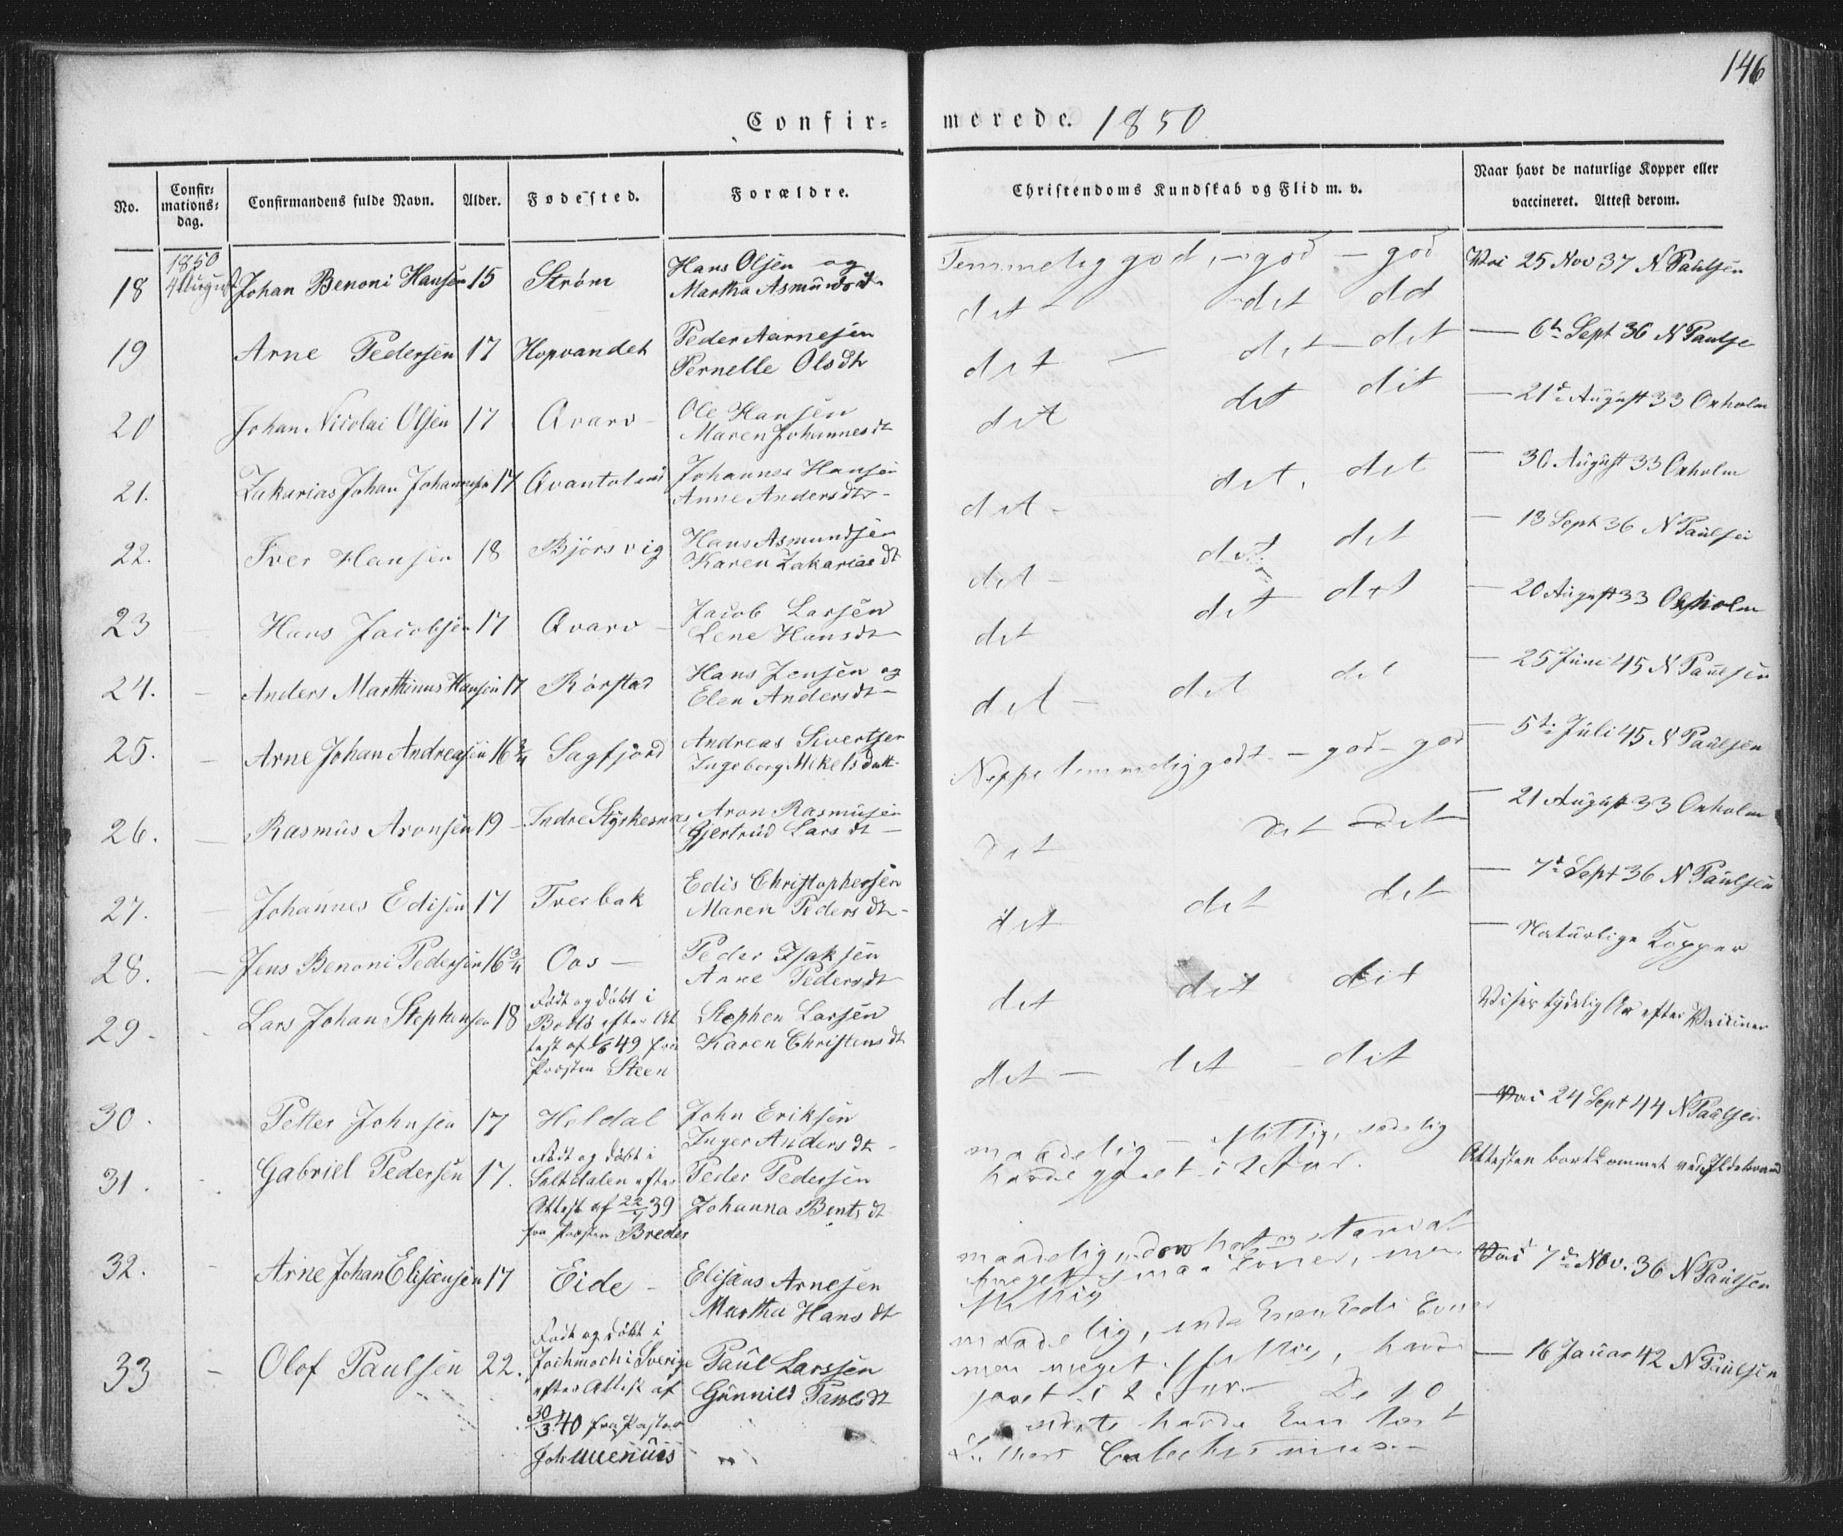 146
Confir- merede. 1850
No. Confirmationsdag. Confirmandens fulde Navn. Alder. Fødested. Forældre. Christendoms Kundskab og Flid m. v. Naar havt de naturlige Kopper eller vaccineret. Attest derom.
18 1850 4 August Johan Benoni Hansen 15 Strøm Hans Olsen og Martha Asmundsdt Temmelig god, - god - god Vac 25 Nov 37 N Paulsen
19 Arne Pedersen 17 Hopvandet Peder Aarnesen Pernelle Olsdtr det - det det — 6te Sept 36 N Paulse
20 Johan Nicolai Olsen 17 Qvarv - Ole Hansen Maren Johannesdt det — det det — 21de August 33 Oxholm
21. Zakarias Johan Johannesen 17 Johannes Hansen Anne Andersdtr - det det dit — 30 August 33 Oxholm
22. Iver Hansen 18 Bjørsvig Hans Asmundsen Karen Zakariasdt det - det, det — 13 Sept 36 N Paulsen
23 Hans Jacobsen 17 Qvarv - Jacob Larsen Lene Hansdt det - det det — 20 August 33 Oxholm
24. Anders Marthinus Hansen 17 Rørstad Hans Jensen og Elen Andersdt det det det — 25 Juni 45 N Paulsen
25. Arne Johan Andreasen 16 3/4 Sagfjord Andreas Sivertsen Ingeborg Mikelsdatt. det - det det — 5te Juli 45 N Paulsen
26. Rasmus Aronsen 19 - Indre Styrkesnæs Aron Rasmusen Gjertrud Larsdt Neppe temmelig godt - god - god — 21 August 33 Oxholm
27. Johannes Edisen 17 Tverbak Edis Christophersen Maren Pedersdt - det det det — 7de Sept 36 N Paulsen
28. Jens Benoni Pedersen 16 3/4 Oos — Peder Isaksen Anne Pedersdt det det det — Naturlige Kopper
29. Lars Johan Stephensen 18 Født og døbt i Bodø efter Attest af 49 fra Præsten Steen Stephen Larsen Karen Christensdt det det det Viser tydelig Ar efter Vaccinen
30. Petter Johnsen 17 Heldal John Eriksen Inger Andersdt - det — det - det — Vac 24 Sept 44 N Paulsen
31. Gabriel Pedersen 17. Født og døbt i Saltdalen efter Attest af 22/1 39 fra Præsten Bredes Peder Pedersen Johanna Bentsdt maadelig - flittig, sædelig havde gaaet i 2 Aar. Attesten bortkommet ved Ildebrand
32. Arne Johan Elisæusen 17 Eide - Elisæus Arnesen Martha Hansdt maadelig, meget smaa Evner, men flittig Vac 7de Nov. 36 N Paulsen
33 Olof Paulsen 22. Født og døbt i Jochmoch i Sverige efter Attest af 30/3 40 fra Pastor Paul Larssen Gunnild Paulsdt maadelig, Evner men meget flittig, havde i 2 Aar - De 10 havde han læst Luthers Catechismus. — 16 Januar 42 N Paulsen